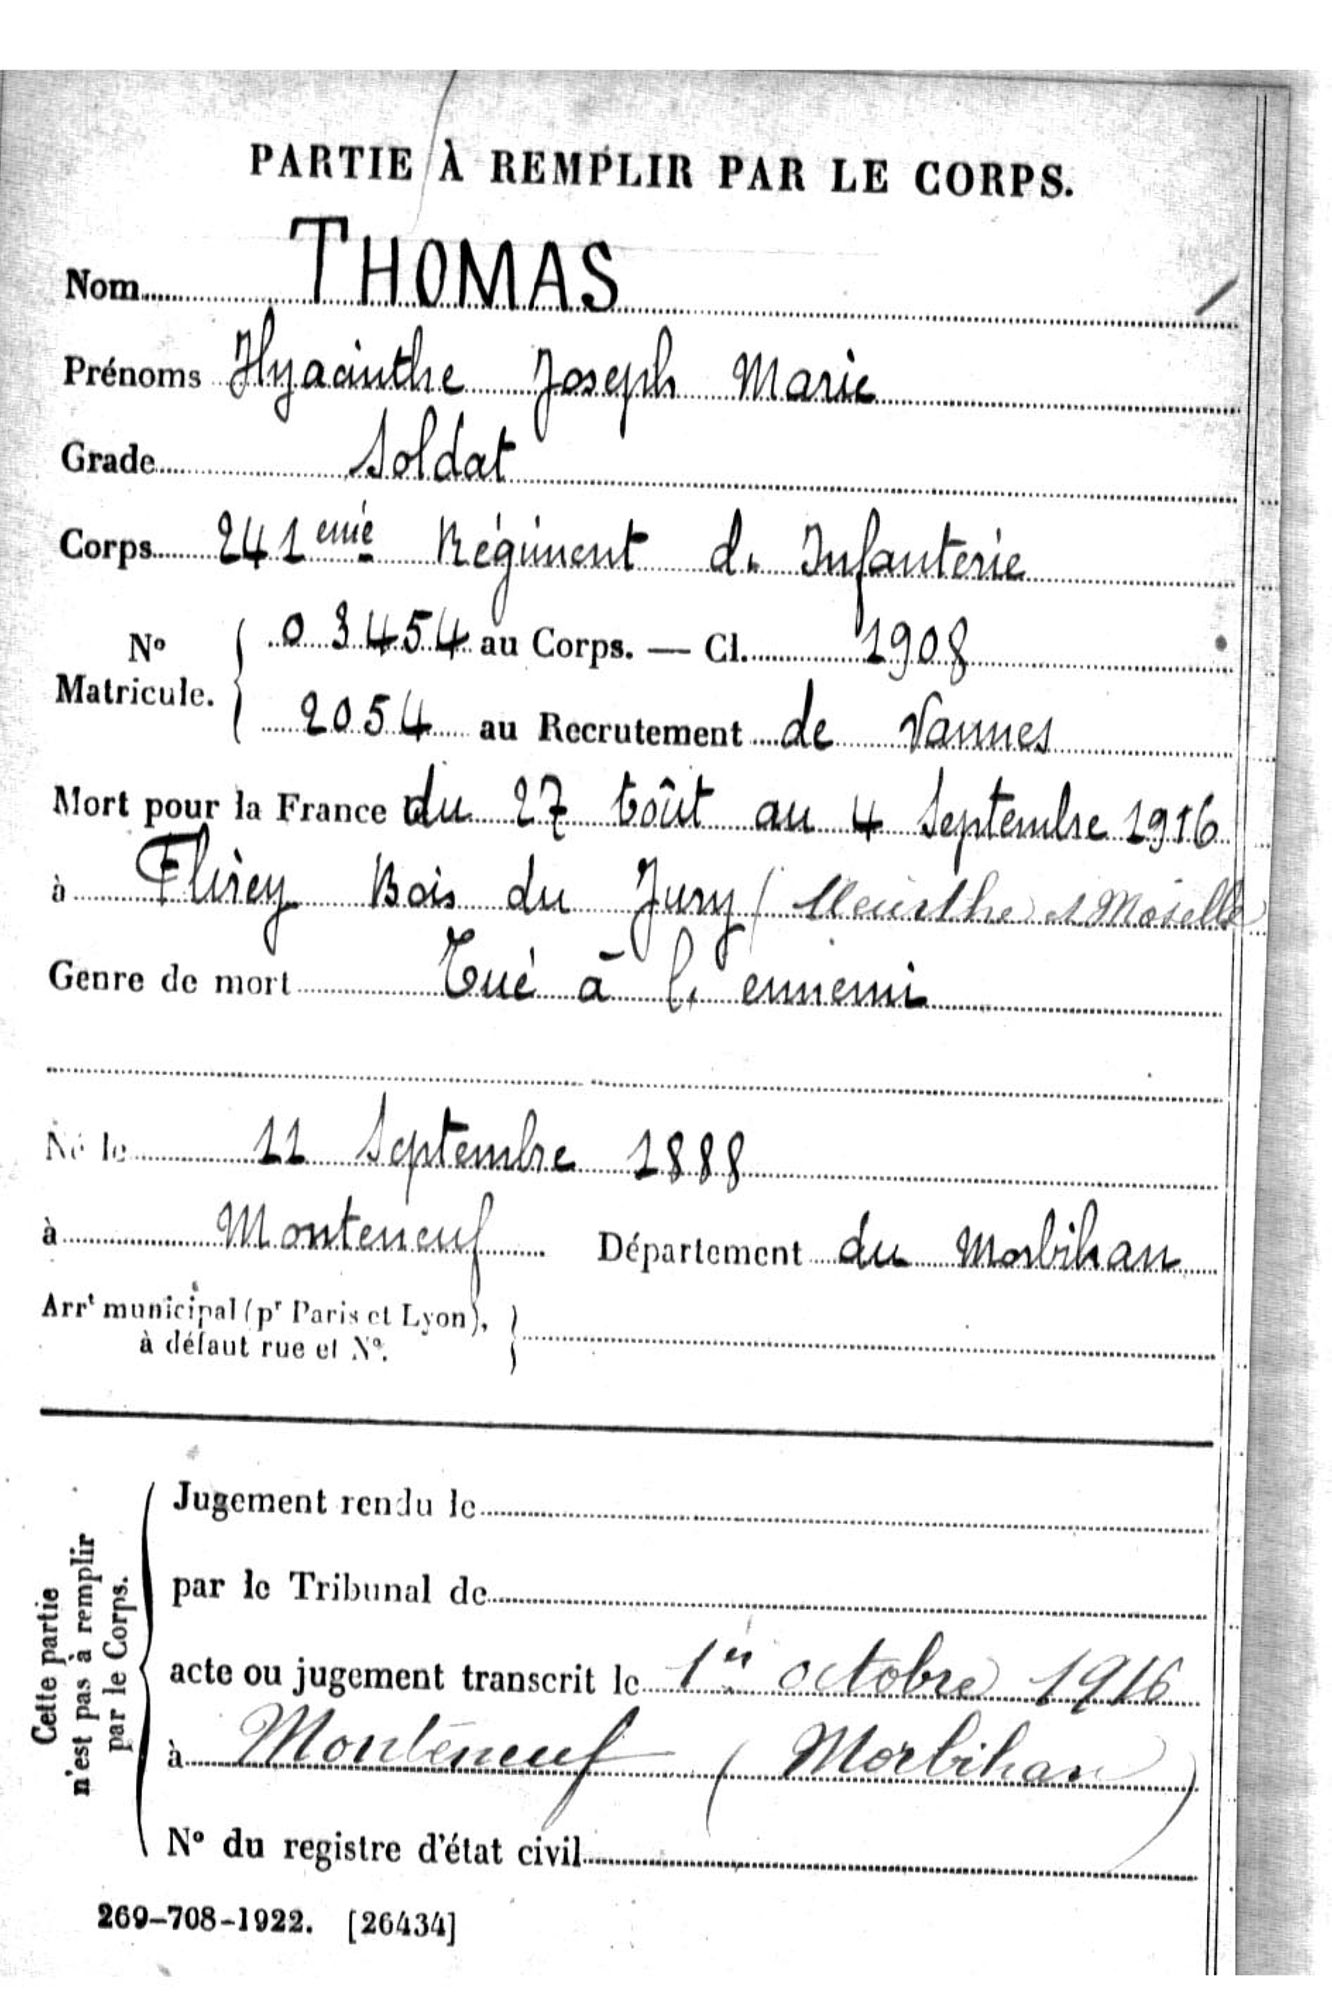 PARTIE À REMPLIR PAR LE CORPS.
Nom THOMAS
Prénoms Hyacinthe Joseph Marie
Grade Soldat
Corps 241 eme Régiment d. Infanterie
No Matricule. { 03454 au Corps. — Cl. 1908
2054 au Recrutement de Vannes
Mort pour la France du 27 Août au 4 Septembre 1916
à Flirey Bois du Jury (Meurthe et Moselle
Genre de mort Tué à l. ennemi
Né le 11 Septembre 1888
à Monteneuf Département du Morbihan
Arrt municipal (pr Paris et Lyon), }
à défaut rue et No.
Cette partie
n'est pas à remplir
par le Corps.
Jugement rendu le
par le Tribunal de
acte ou jugement transcrit le 1er octobre 1916
à Monténeuf (Morbihan)
No du registre d'état civil
269-708-1922. [26434]